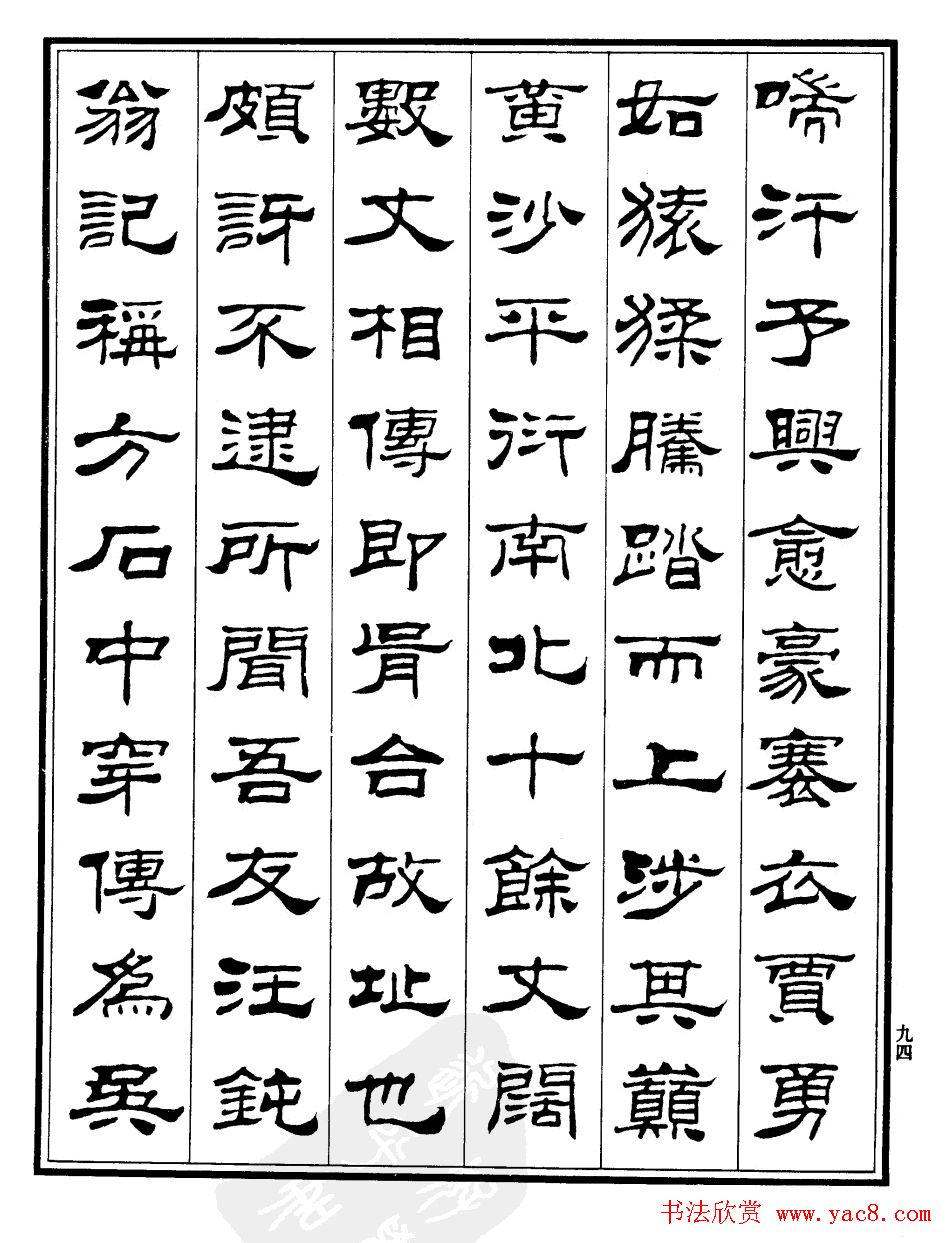 唏汗予興愈豪褰衣賈勇
如猿猱騰踏而上涉其巔
黃沙平衍南北十餘丈闊
數丈相傳即胥台故址也
頗訝不逮所聞吾友汪鈍
翁記稱方石中穿傳為吳
九四
书法欣赏 www.yac8.com